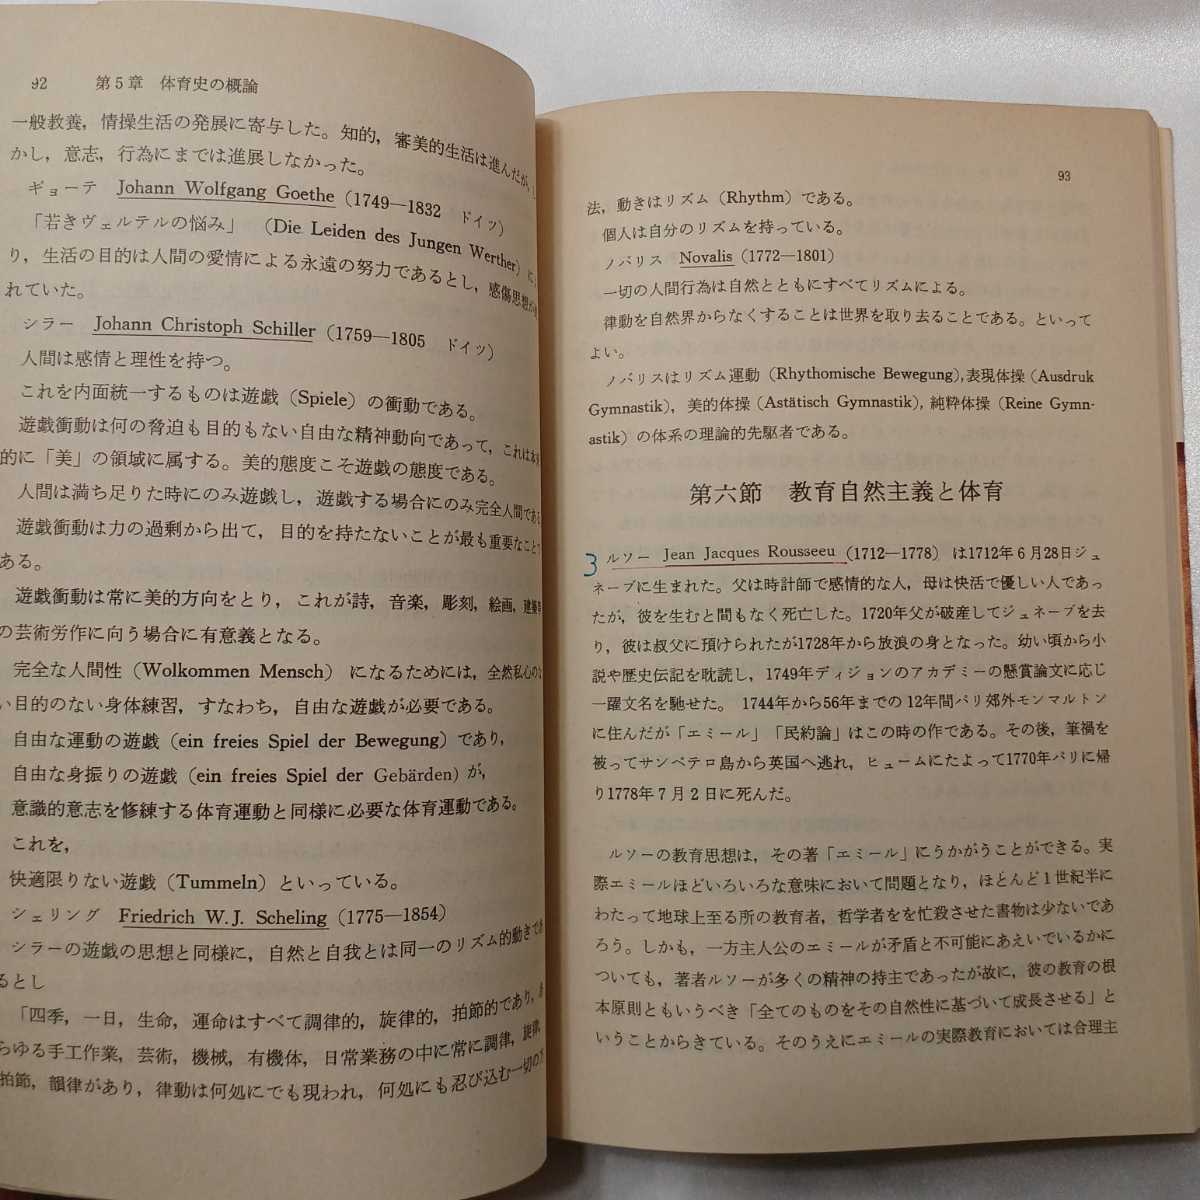 92　第5章　体育史の概論
一般教養，情操生活の発展に寄与した。知的，審美的生活は進んだが，し
かし，意志，行為にまでは進展しなかった。
ギョーテ　Johann Wolfgang Goethe（1749—1832　ドイツ）
「若きヴェルテルの悩み」（Die Leiden des Jungen Werther）に
り，生活の目的は人間の愛情による永遠の努力であるとし，感傷思想が
れていた。
シラー　Johann Christoph Schiller（1759—1805　ドイツ）
人間は感情と理性を持つ。
これを内面統一するものは遊戯（Spiele）の衝動である。
遊戯衝動は何の脅迫も目的もない自由な精神動向であって，これは本
的に「美」の領域に属する。美的態度こそ遊戯の態度である。
人間は満ち足りた時にのみ遊戯し，遊戯する場合にのみ完全人間である
遊戯衝動は力の過剰から出て，目的を持たないことが最も重要なことで
ある。
遊戯衝動は常に美的方向をとり，これが詩，音楽，彫刻，絵画，建築等
の芸術労作に向う場合に有意義となる。
完全な人間性（Wolkommen Mensch）になるためには，全然私心のな
い目的のない身体練習，すなわち，自由な遊戯が必要である。
自由な運動の遊戯（ein freies Spiel der Bewegung）であり，
自由な身振りの遊戯（ein freies Spiel der Gebärden）が，
意識的意志を修練する体育運動と同様に必要な体育運動である。
これを，
快適限りない遊戯（Tummeln）といっている。
シェリング　Friedrich W.J. Scheling（1775—1854）
シラーの遊戯の思想と同様に，自然と自我とは同一のリズム的動きであ
るとし
「四季，一日，生命，運命はすべて調律的，旋律的，拍節的であり，あ
らゆる手工作業，芸術，機械，有機体，日常業務の中に常に調律，旋律，
拍節，韻律があり，律動は何処にでも現われ，何処にも忍び込む一切の方
93
法，動きはリズム（Rhythm）である。
個人は自分のリズムを持っている。
ノバリス　Novalis（1772—1801）
一切の人間行為は自然とともにすべてリズムによる。
律動を自然界からなくすることは世界を取り去ることである。といって
よい。
ノバリスはリズム運動（Rhythomische Bewegung），表現体操（Ausdruk
Gymnastik），美的体操（Astätisch Gymnastik），純粋体操（Reine Gymn-
astik）の体系の理論的先駆者である。
第六節　教育自然主義と体育
3 ルソー　Jean Jacques Rousseeu（1712—1778）は1712年6月28日ジュ
ネーブに生まれた。父は時計師で感情的な人，母は快活で優しい人であっ
たが，彼を生むと間もなく死亡した。1720年父が破産してジュネーブを去
り，彼は叔父に預けられたが1728年から放浪の身となった。幼い頃から小
説や歴史伝記を耽読し，1749年ディジョンのアカデミーの懸賞論文に応じ
一躍文名を馳せた。1744年から56年までの12年間パリ郊外モンマルトン
に住んだが「エミール」「民約論」はこの時の作である。その後，筆禍を
被ってサンペテロ島から英国へ逃れ，ヒュームにたよって1770年パリに帰
り1778年7月2日に死んだ。
ルソーの教育思想は，その著「エミール」にうかがうことができる。実
際エミールほどいろいろな意味において問題となり，ほとんど1世紀半に
わたって地球上至る所の教育者，哲学者をを忙殺させた書物は少ないであ
ろう。しかも，一方主人公のエミールが矛盾と不可能にあえいでいるかに
ついても，著者ルソーが多くの精神の持主であったが故に，彼の教育の根
本原則ともいうべき「全てのものをその自然性に基づいて成長させる」と
いうことからきている。そのうえにエミールの実際教育においては合理主